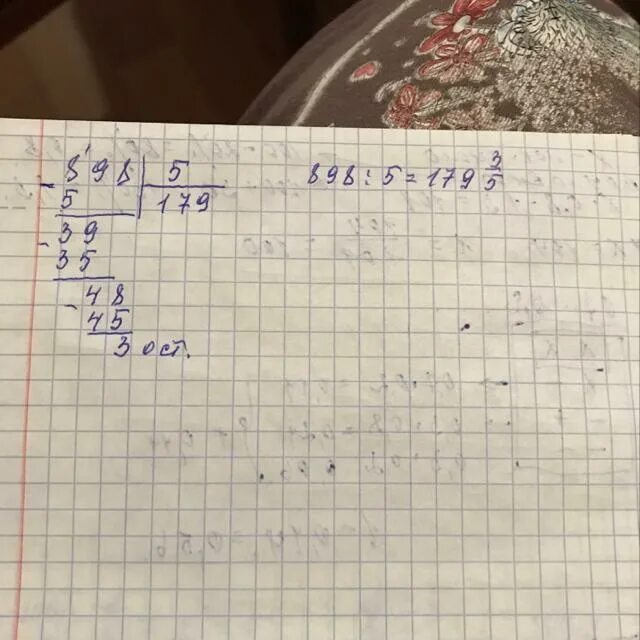 898 | 5
5 | 179
- 39
35
- 48
45
3 ост.
898 : 5 = 179 3/5